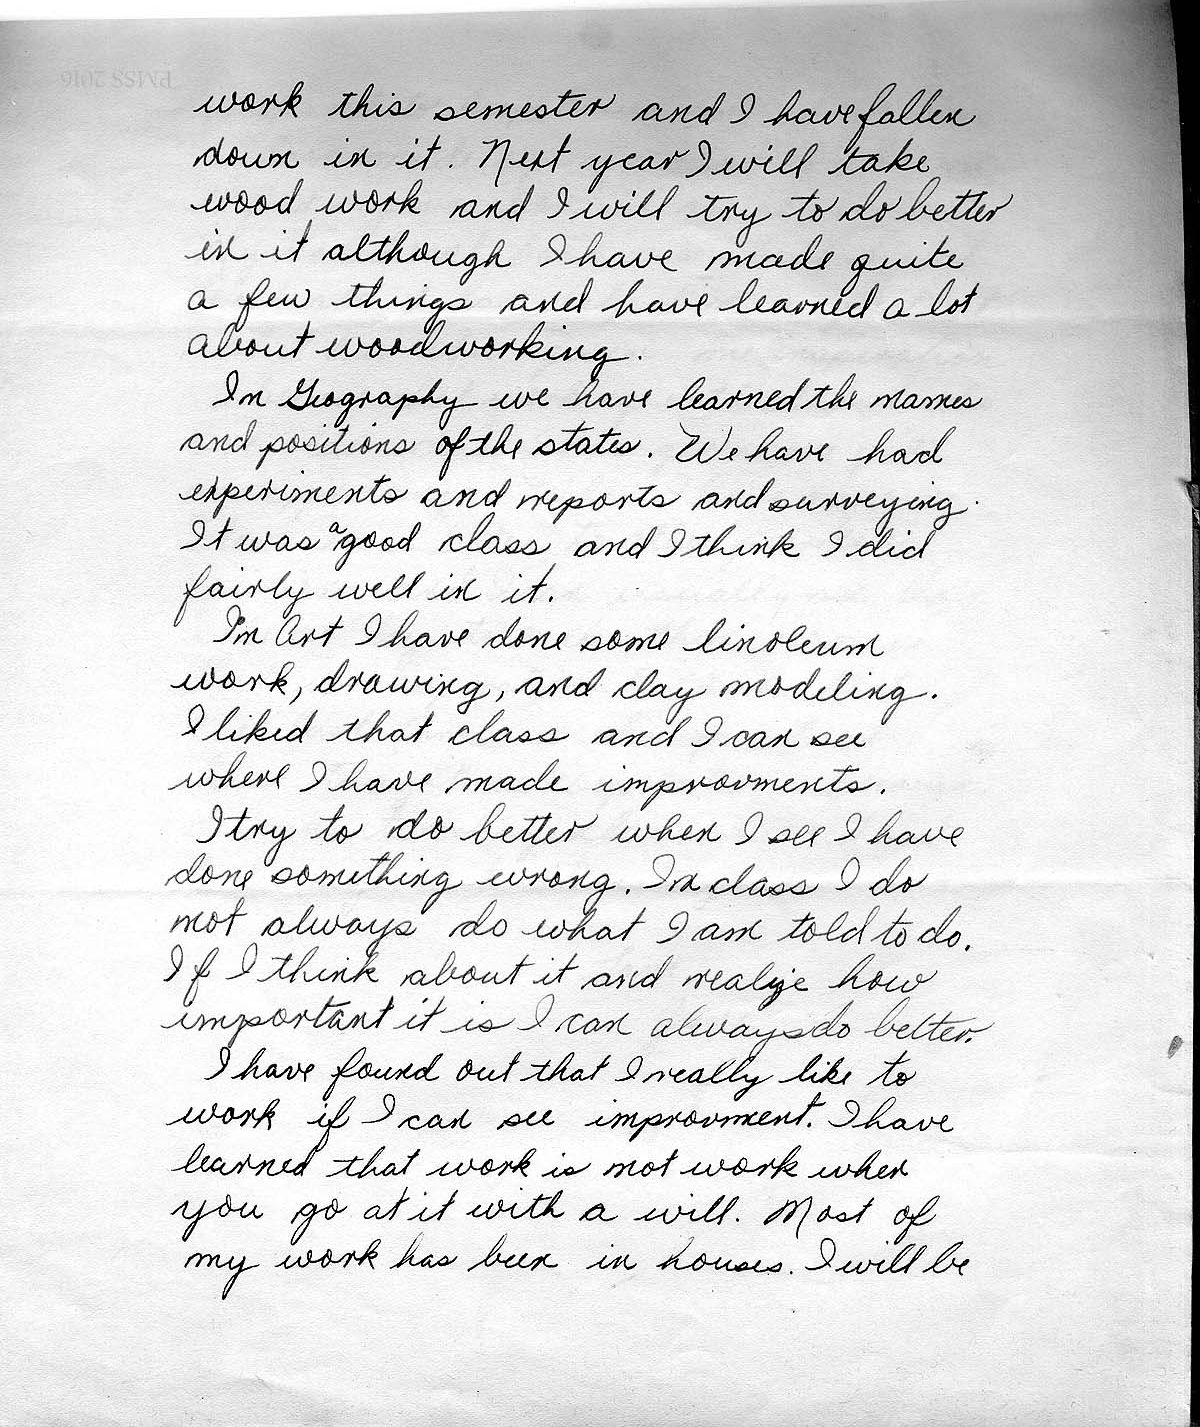 PMSS 2016
work this semester and I have fallen
down in it. Next year I will take
wood work and I will try to do better
in it although I have made quite
a few things and have learned a lot
about woodworking.
In Geography we have learned the names
and positions of the states. We have had
experiments and reports and surveying.
It was a good class and I think I did
fairly well in it.
In Art I have done some linoleum
work, drawing, and clay modeling.
I liked that class and I can see
where I have made improvments.
I try to do better when I see I have
done something wrong. In class I do
not always do what I am told to do.
If I think about it and realize how
important it is I can always do better.
I have found out that I really like to
work if I can see improvment. I have
learned that work is not work when
you go at it with a will. Most of
my work has been in houses. I will be